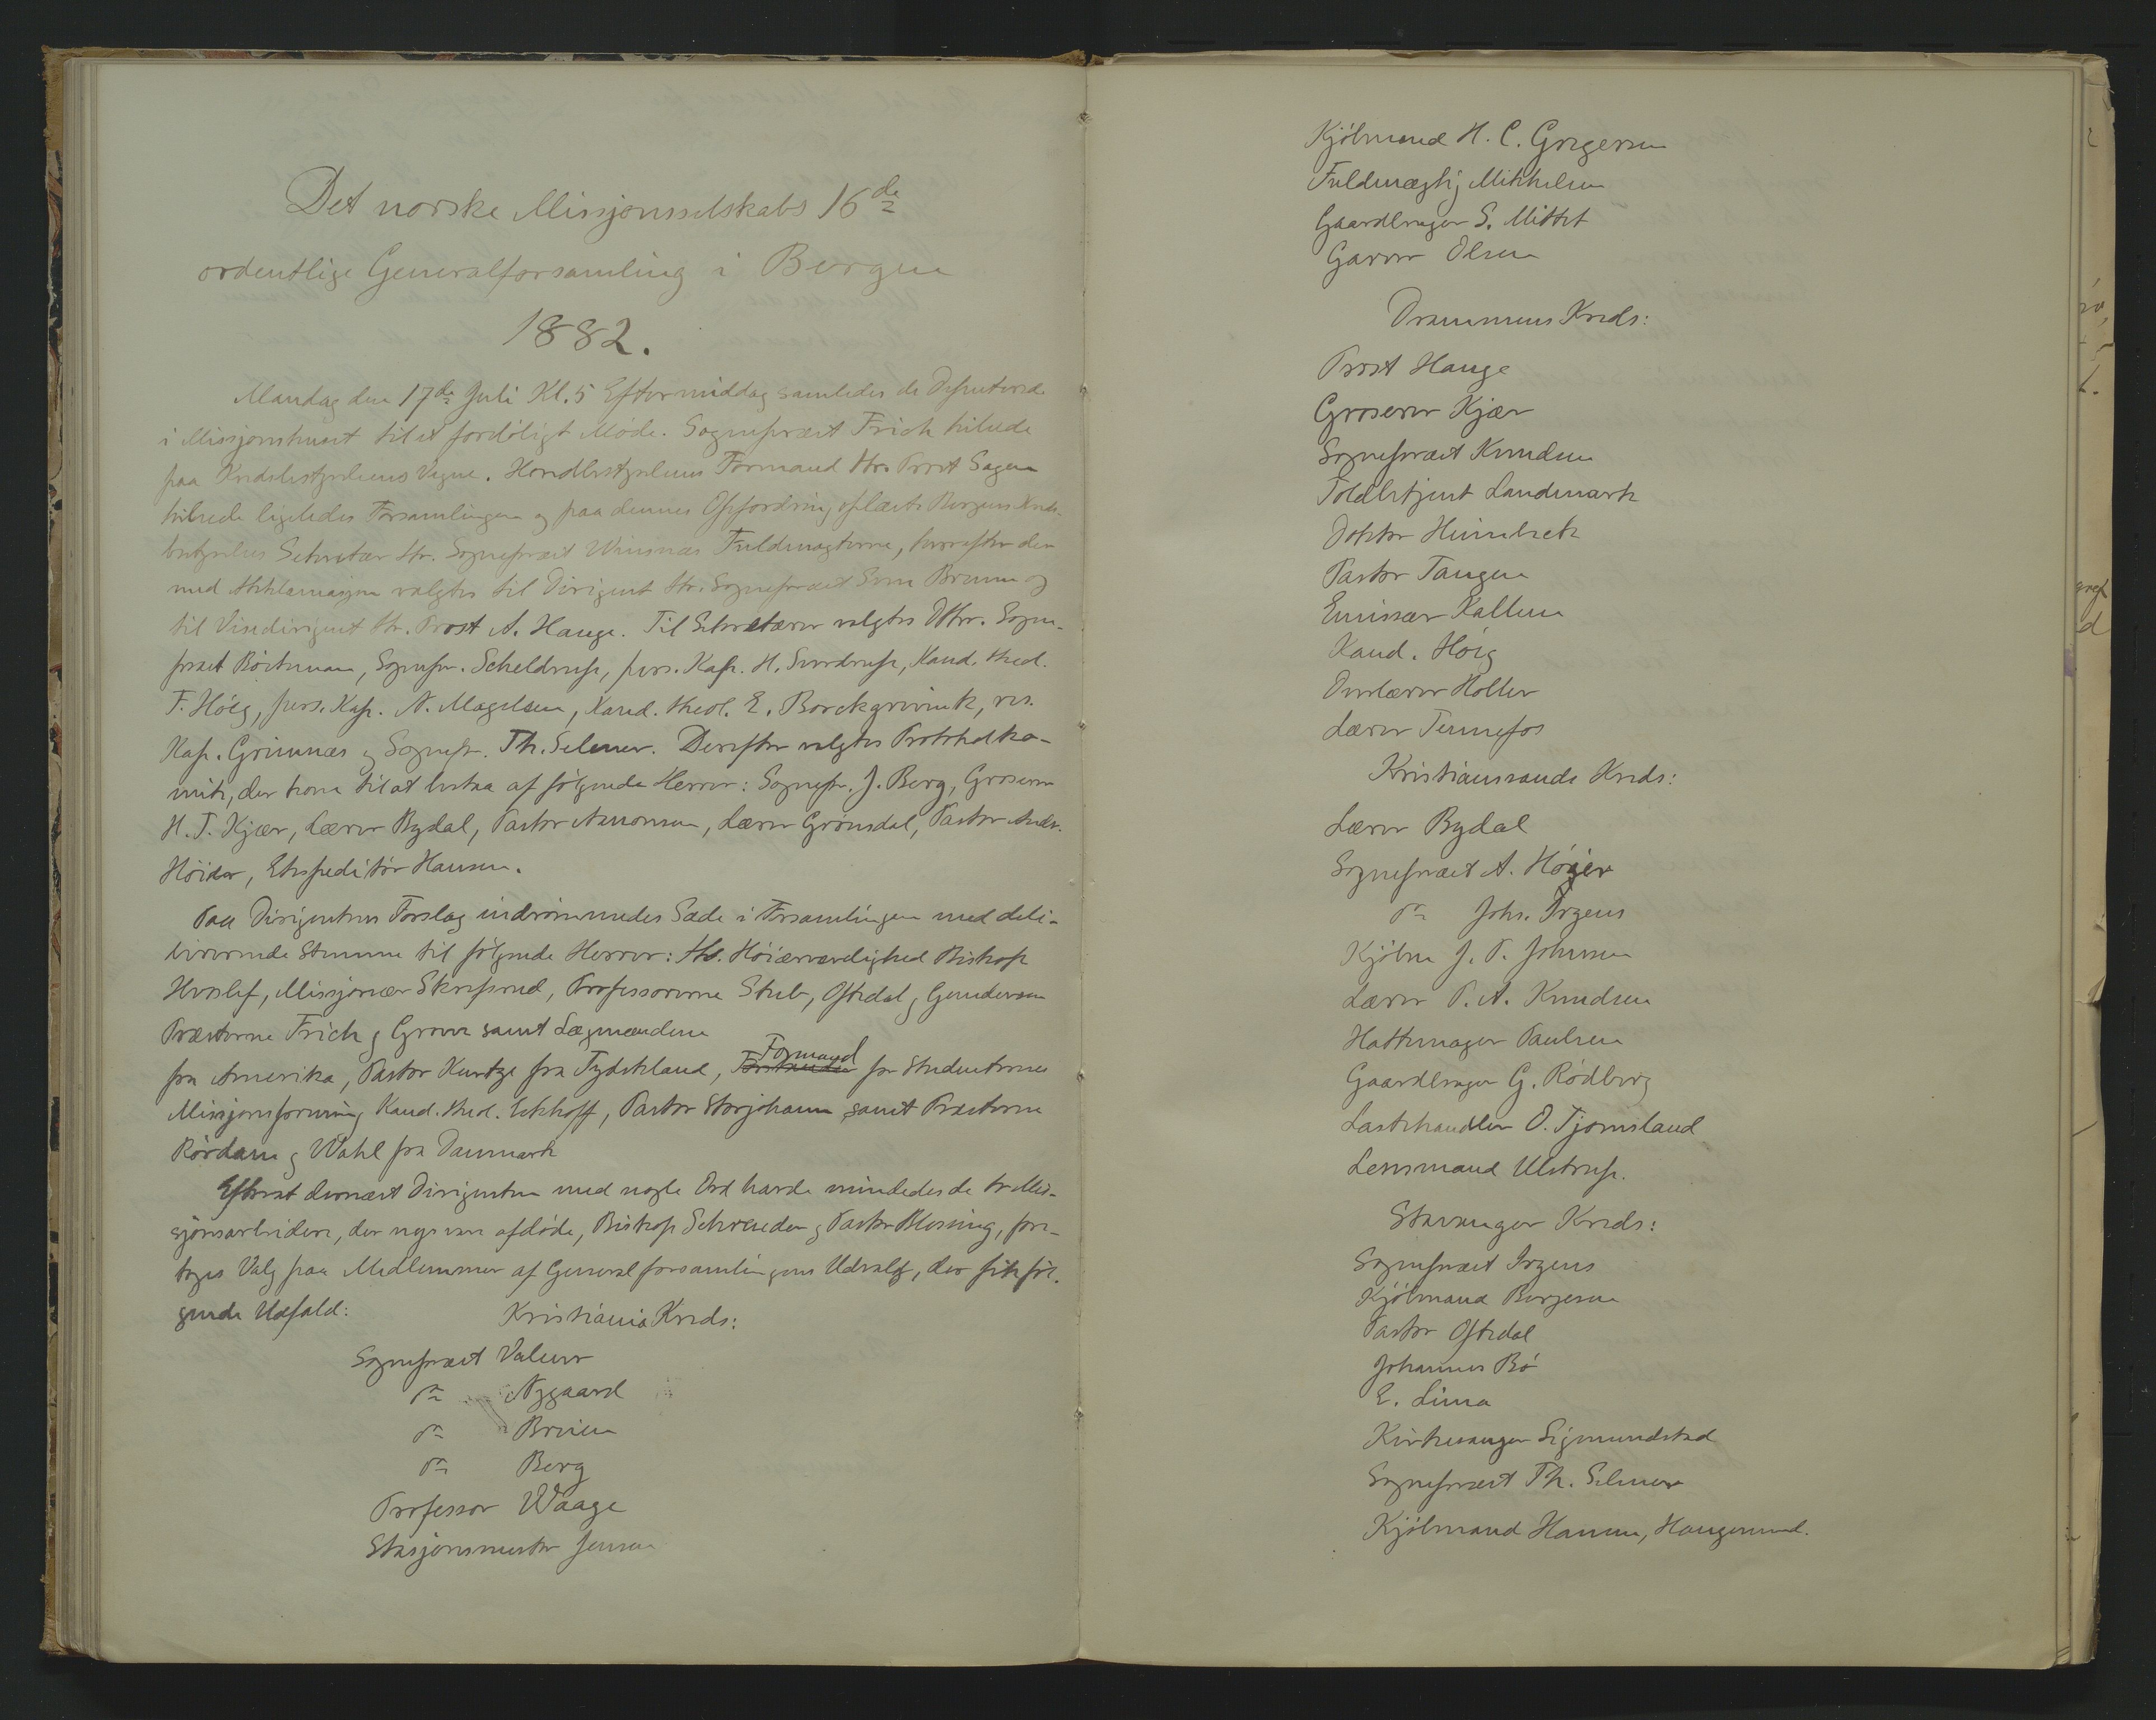 Det norske Missjonsselskabs 16de
ordentlige Generalforsamling i Bergen
1882.
Mandag den 17de Juli Kl. 5 Eftermiddag samledes de Deputerede
i Missjonshuset til et foreløbigt Møde. Sognepræst Frich hilsede
paa Kredsbestyrelsens Vegne. Hovedbestyrelsens Formand Hr. Provst Sagen
hilsede ligeledes Forsamlingen og paa dennes Opfordring oplæste Bergens Kreds-
bestyrelses Sekretær Hr. Sognepræst Wiesnæs Fuldmagterne, hvorefter der
med Akklamasjon valgtes til Dirigent Hr. Sognepræst Sven Brunn og
til Visedirigent Hr. Provst A. Hauge. Til Sekretærer valgtes DHrr. Sogne-
præst Børtmann, Sognepr. Scheldrup, pers. Kap. H. Sverdrup, Kand. theol.
F. Höeg, pers. Kap. N. Magelsen, Kand. theol. E. Borchgrevink, res.
Kap. Grimnæs og Sognepr. Th. Selmer. Derefter valgtes Protokolko-
mite, der kom til at bestaa af følgende Herrer: Sognepr. J. Berg, Groserer
H. T. Kjær, Lærer Rydal, Pastor Aanonsen, Lærer Grönsdal, Pastor Andr.
Höier, Ekspeditör Hansen.
Paa Dirigentens Forslag indrömmedes Sæde i Forsamlingen med deli-
bererende Stemme til følgende Herrer: Hs. Höiærværdighed Biskop
Hvoslef, Missjonær Skrefsrud, Professorerne Stub, Oftedal og Gundersen
Præsterne Frich og Grove samt Lægmændene
fra Amerika, Pastor Kuntze fra Tydskland, Formand for Studenternes
Missjonsforening Kand. theol. Eckhoff, Pastor Storjohann samt Præsterne
Rördam og Wahl fra Danmark
Efterat dernæst Dirigenten med nogle Ord havde mindedes de to Mis-
sjonsarbeidere, der nys var afdöde, Biskop Schreuder og Pastor Blessing, fore-
toges Valg paa Medlemmer af Generalforsamlingens Udvalg, der fik föl-
gende Udfald:
Kristiania Kreds:
Sognepræst Valeur
do Nygaard
do Bruun
do Berg
Professor Waage
Stasjonsmester Jensen
Kjöbmand H. C. Gregersen
Fuldmægtig Mikkelsen
Gaardbruger S. Mittet
Garver Olsen
Drammens Kreds:
Provst Hauge
Groserer Kjær
Sognepræst Knudsen
Toldbetjent Landmark
Doktor Heimbeck
Pastor Tangen
Emissær Kallem
Kand. Höeg
Overlærer Holter
Lærer Tennefos
Kristianssands Kreds:
Lærer Rydal
Sognepræst A. Höyer
do Johs. Irgens
Kjöbm J. P. Johnsen
Lærer P. A. Knudsen
Hattemager Paulsen
Gaardbruger G. Rödberg
Lasthandler O. Tjomsland
Lensmand Ulstrup.
Stavanger Kreds:
Sognepræst Irgens
Kjöbmand Borgesen
Pastor Oftedal
Johannes Bö
E. Lima
Kirkesanger Sigmundstad
Sognepræst Th. Selmer
Kjöbmand Hansen, Haugesund.